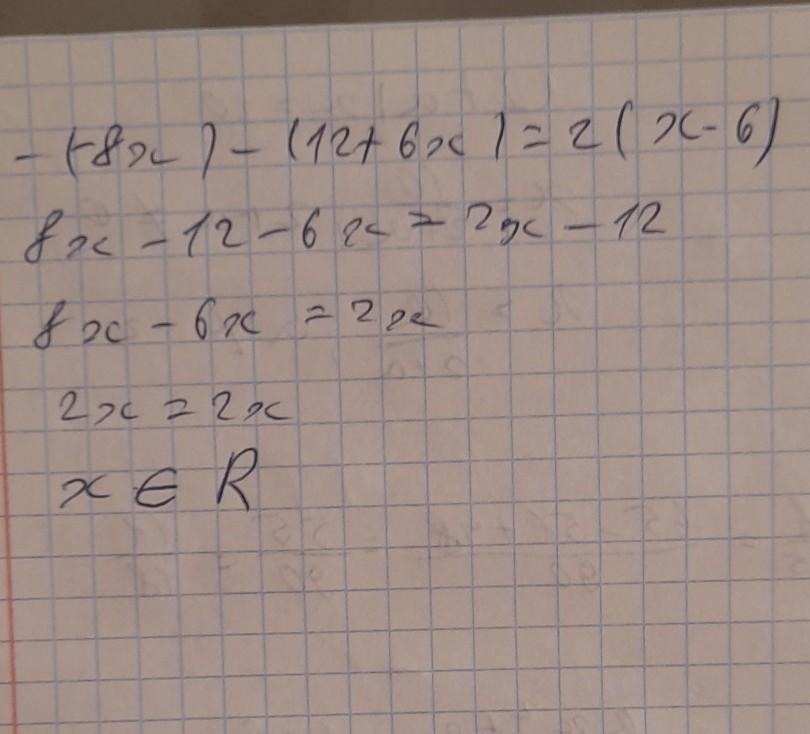 -(-8x)-(12+6x)=2(x-6)
8x-12-6x=2x-12
8x-6x=2x
2x=2x
x∈R